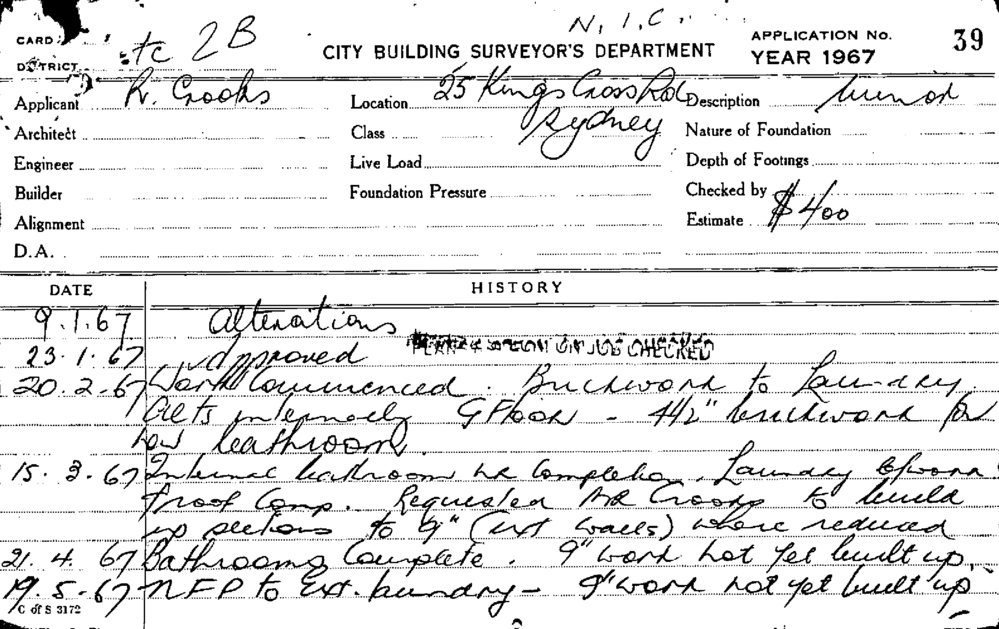 N. I. C.
CARD
DISTRICT
tc 2B
CITY BUILDING SURVEYOR'S DEPARTMENT
APPLICATION No.
YEAR 1967
39
Applicant R. Crooks
Location 25 Kings Cross Rd
Sydney
Description Minor
Architect
Class
Nature of Foundation
Engineer
Live Load
Depth of Footings
Builder
Foundation Pressure
Checked by
Alignment
Estimate $400
D.A.
DATE
HISTORY
9.1.67 Alterations
23.1.67 Approved PLAN & SPECN ON JOB CHECKED
20.2.67 Work Commenced. Brickwork to Laundry.
Alts internally G Floor - 4½" brickwork for
new bathroom.
15.3.67 Internal bathroom completion. Laundry
Proof Comp. Requested Mr Crooks to build
up sections to 9" (ext walls) where reduced
21.4.67 Bathrooms Complete. 9" work not yet built up.
19.5.67 NFP to ext. laundry - 9" work not yet built up
C of S 3172